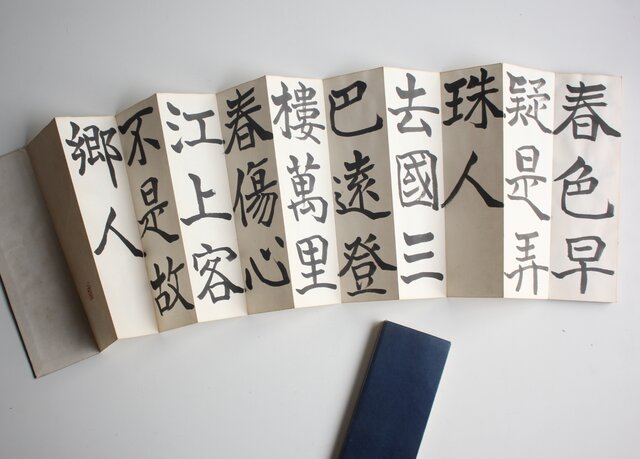 春色早
疑是弄
珠人
去國三
巴遠登
樓萬里
春傷心
江上客
不是故
鄉人